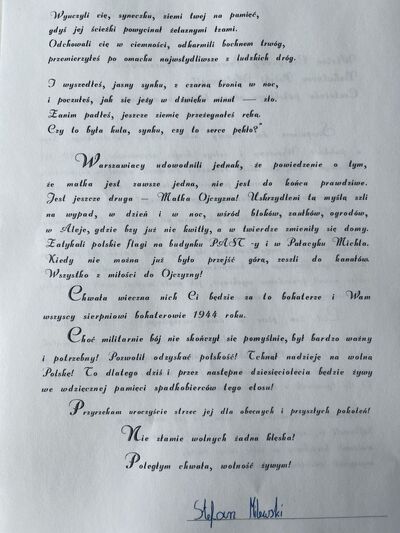 Wyuczyli cię, syneczku, ziemi twej na pamięć,
gdyś jej ścieżki powycinał żelaznymi łzami.
Odchowali cię w ciemności, odkarmili bochnem trwóg,
przemierzyłeś po omacku najwstydliwsze z ludzkich dróg.
I wyszedłeś, jasny synku, z czarną bronią w noc,
i poczułeś, jak się jeży w dźwięku minut — zło.
Zanim padłeś, jeszcze ziemię przeżegnałeś ręką.
Czy to była kula, synku, czy to serce pękło?"
Warszawiacy udowodnili jednak, że powiedzenie o tym,
że matka jest zawsze jedna, nie jest do końca prawdziwe.
Jest jeszcze druga — Matka Ojczyzna! Uskrzydleni tą myślą szli
na wypad, w dzień i w noc, wśród bloków, zaułków, ogrodów,
w Aleje, gdzie bzy już nie kwitły, a w twierdze zmieniły się domy.
Zatykali polskie flagi na budynku PAST -y i w Pałacyku Michla.
Kiedy nie można już było przejść górą, zeszli do kanałów.
Wszystko z miłości do Ojczyzny!
Chwała wieczna nich Ci będzie za to bohaterze i Wam
wszyscy sierpniowi bohaterowie 1944 roku.
Choć militarnie bój nie skończył się pomyślnie, był bardzo ważny
i potrzebny! Pozwolił odzyskać polskość! Tchnął nadzieję na wolną
Polskę! To dlatego dziś i przez następne dziesięciolecia będzie żywy
we wdzięcznej pamięci spadkobierców tego etosu!
Przyrzekam uroczyście strzec jej dla obecnych i przyszłych pokoleń!
Nie złamie wolnych żadna klęska!
Poległym chwała, wolność żywym!
Stefan Milewski